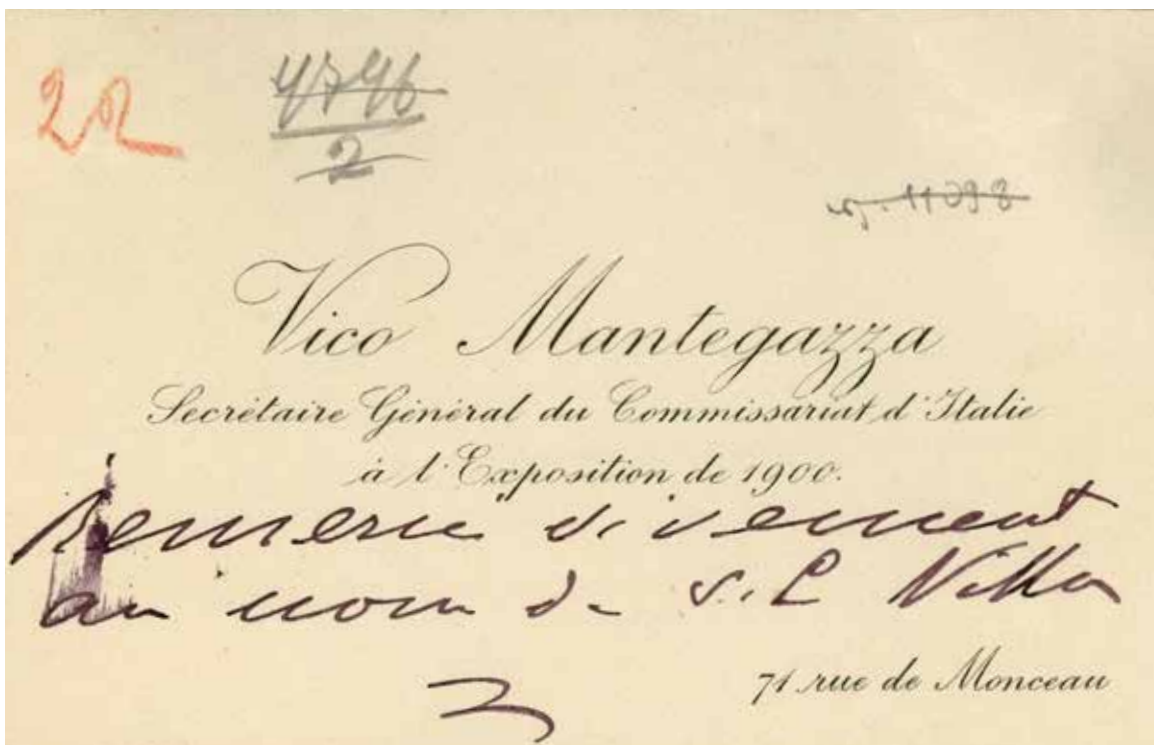 22
4746
2
11098
Vico Mantegazza
Secrétaire Général du Commissariat d'Italie
à l'Exposition de 1900.
Remercie vivement
au nom de S.E Villa
71 rue de Monceau